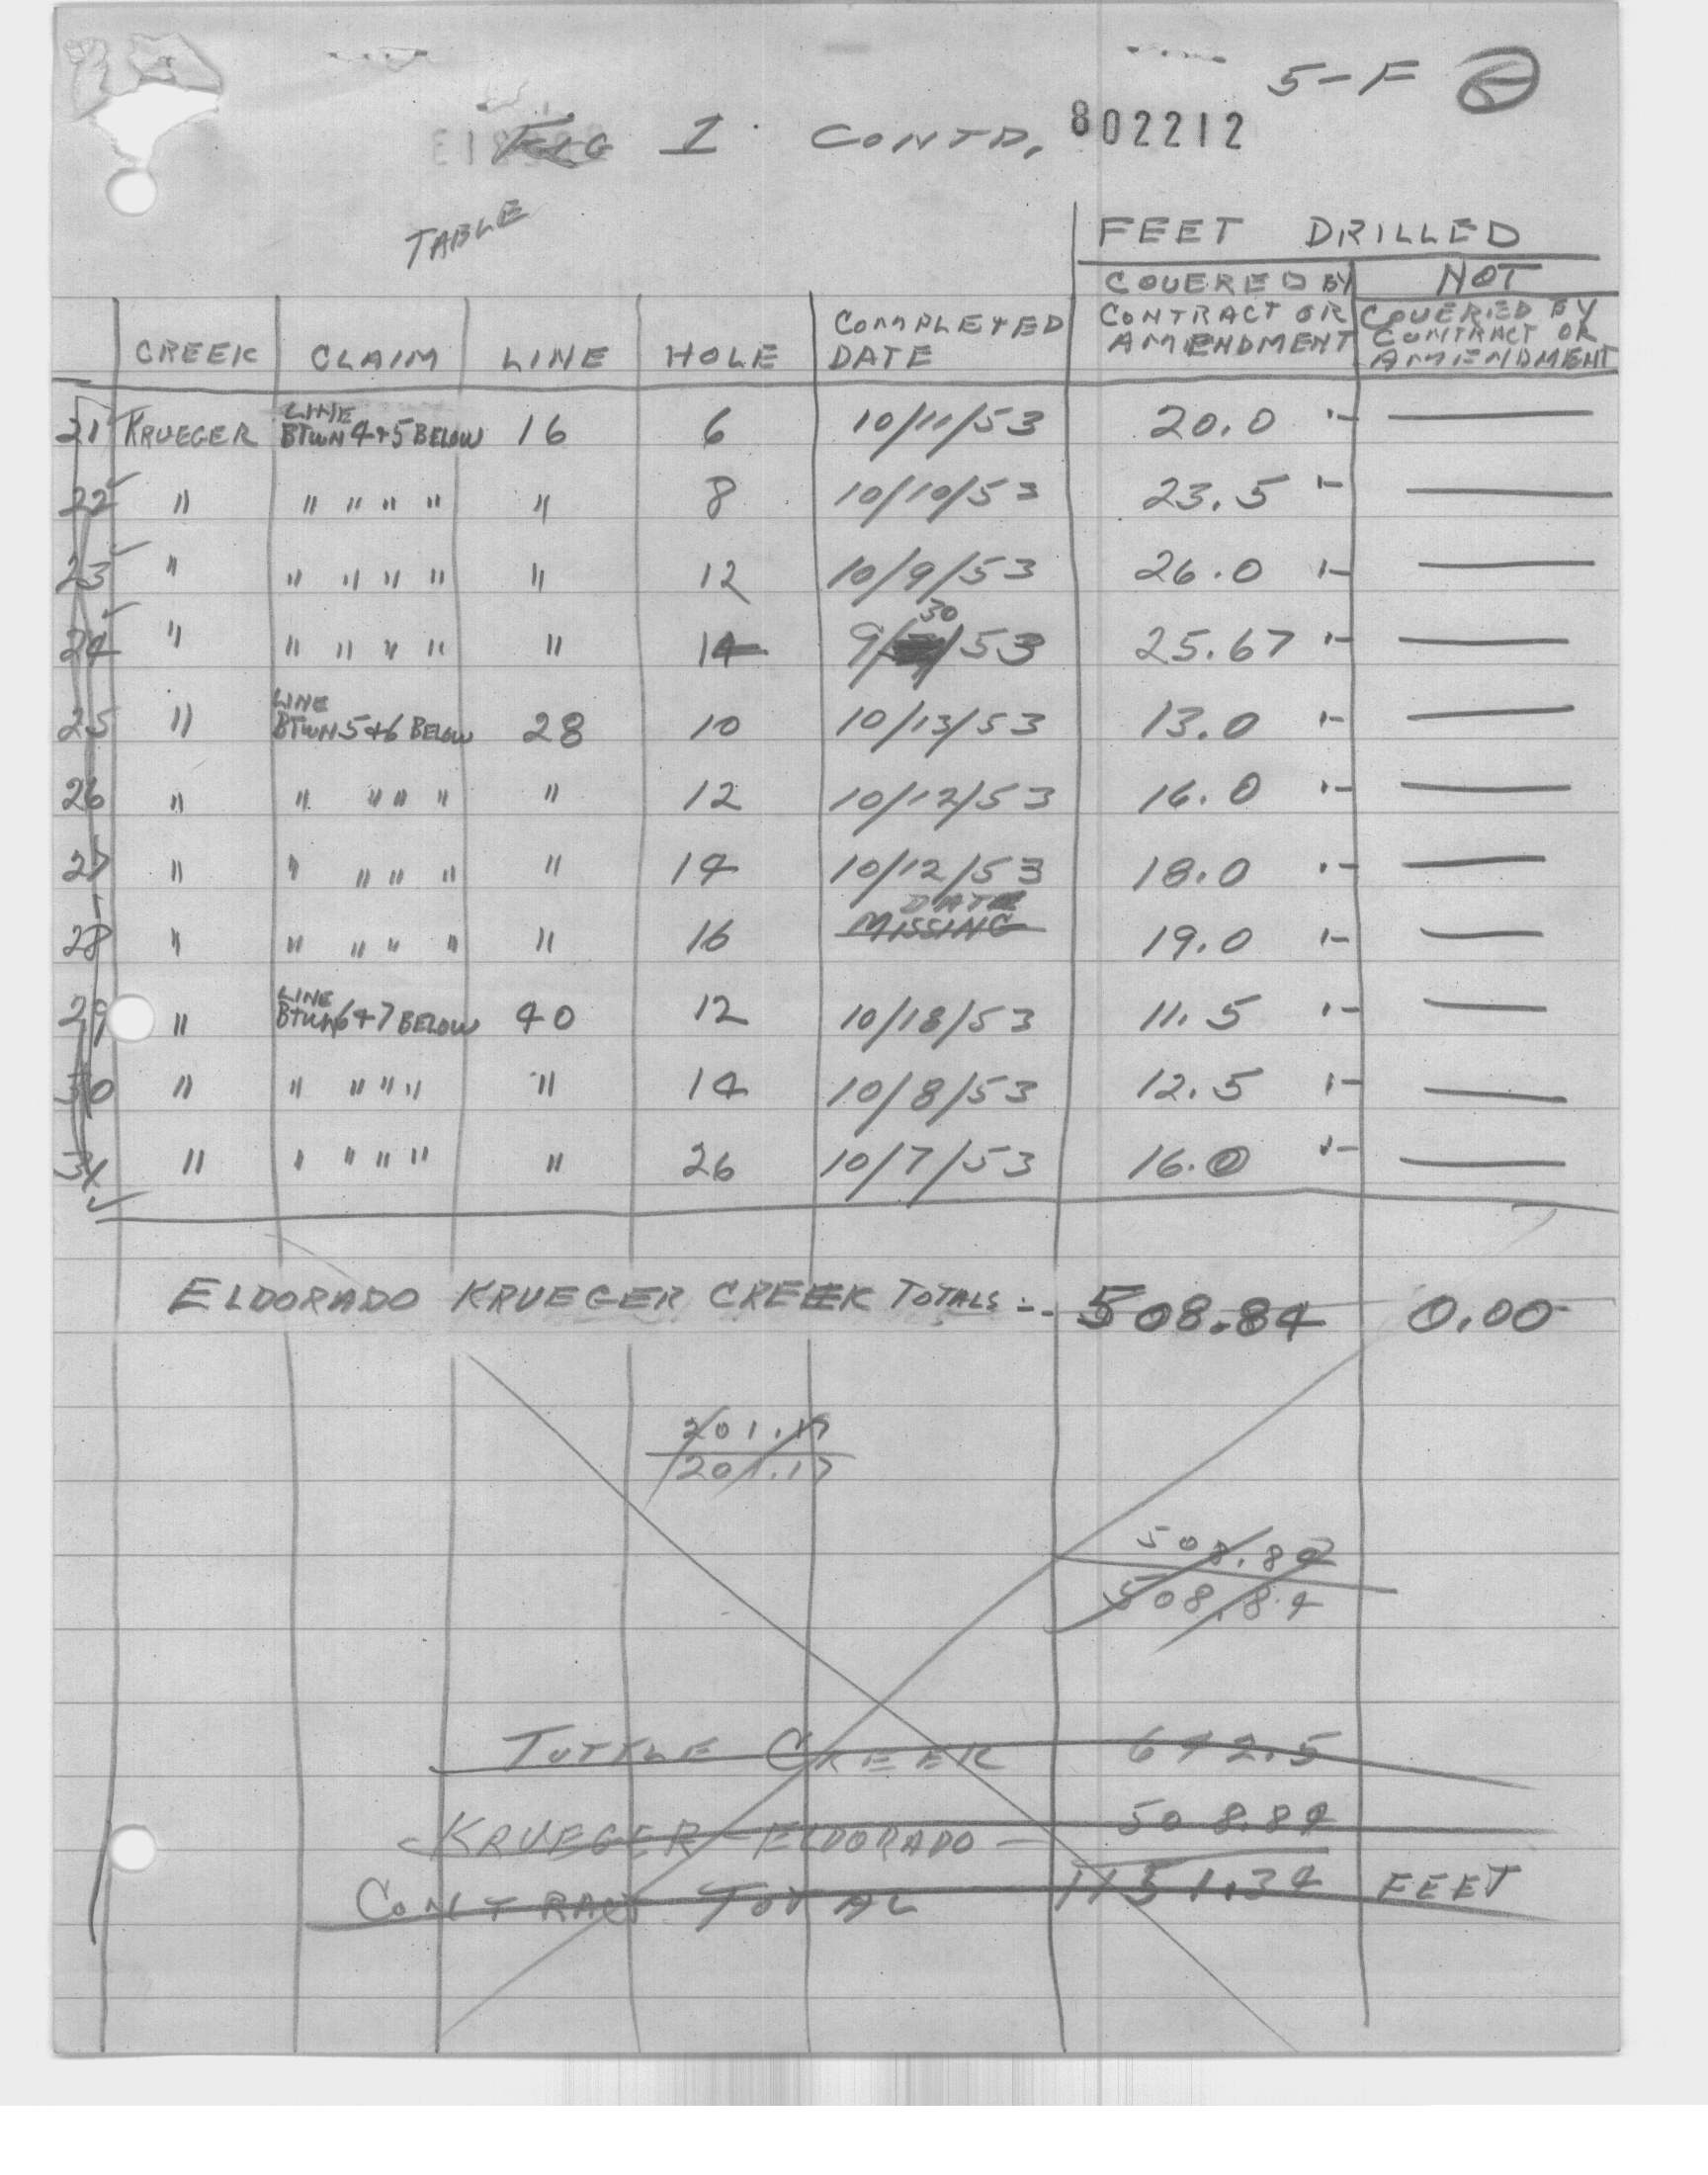 5-F
FIG I CONTD. 802212
TABLE
FEET DRILLED
COVERED BY CONTRACT OR AMENDMENT NOT COVERED BY CONTRACT OR AMENDMENT
CREEK CLAIM LINE HOLE COMPLETED DATE
21 KRUEGER LINE BTWN 4+5 BELOW 16 6 10/11/53 20.0 "- —
22 " " " " " " 8 10/10/53 23.5 "- —
23 " " " " " " 12 10/9/53 26.0 "- —
24 " " " " " " 14 9/30/53 25.67 "- —
25 " LINE BTWN 5+6 BELOW 28 10 10/13/53 13.0 "- —
26 " " " " " " 12 10/12/53 16.0 "- —
27 " " " " " " 14 10/12/53 18.0 "- —
28 " " " " " " 16 DATE MISSING 19.0 "- —
29 " LINE BTWN 6+7 BELOW 40 12 10/18/53 11.5 "- —
30 " " " " " " 14 10/8/53 12.5 "- —
31 " " " " " " 26 10/7/53 16.0 "- —
ELDORADO KRUEGER CREEK TOTALS :- 508.84 0.00
201.17
201.17
508.84
508.84
TUTTLE CREEK 642.5
KRUEGER-ELDORADO — 508.84
CONTRACT TOTAL 1151.34 FEET